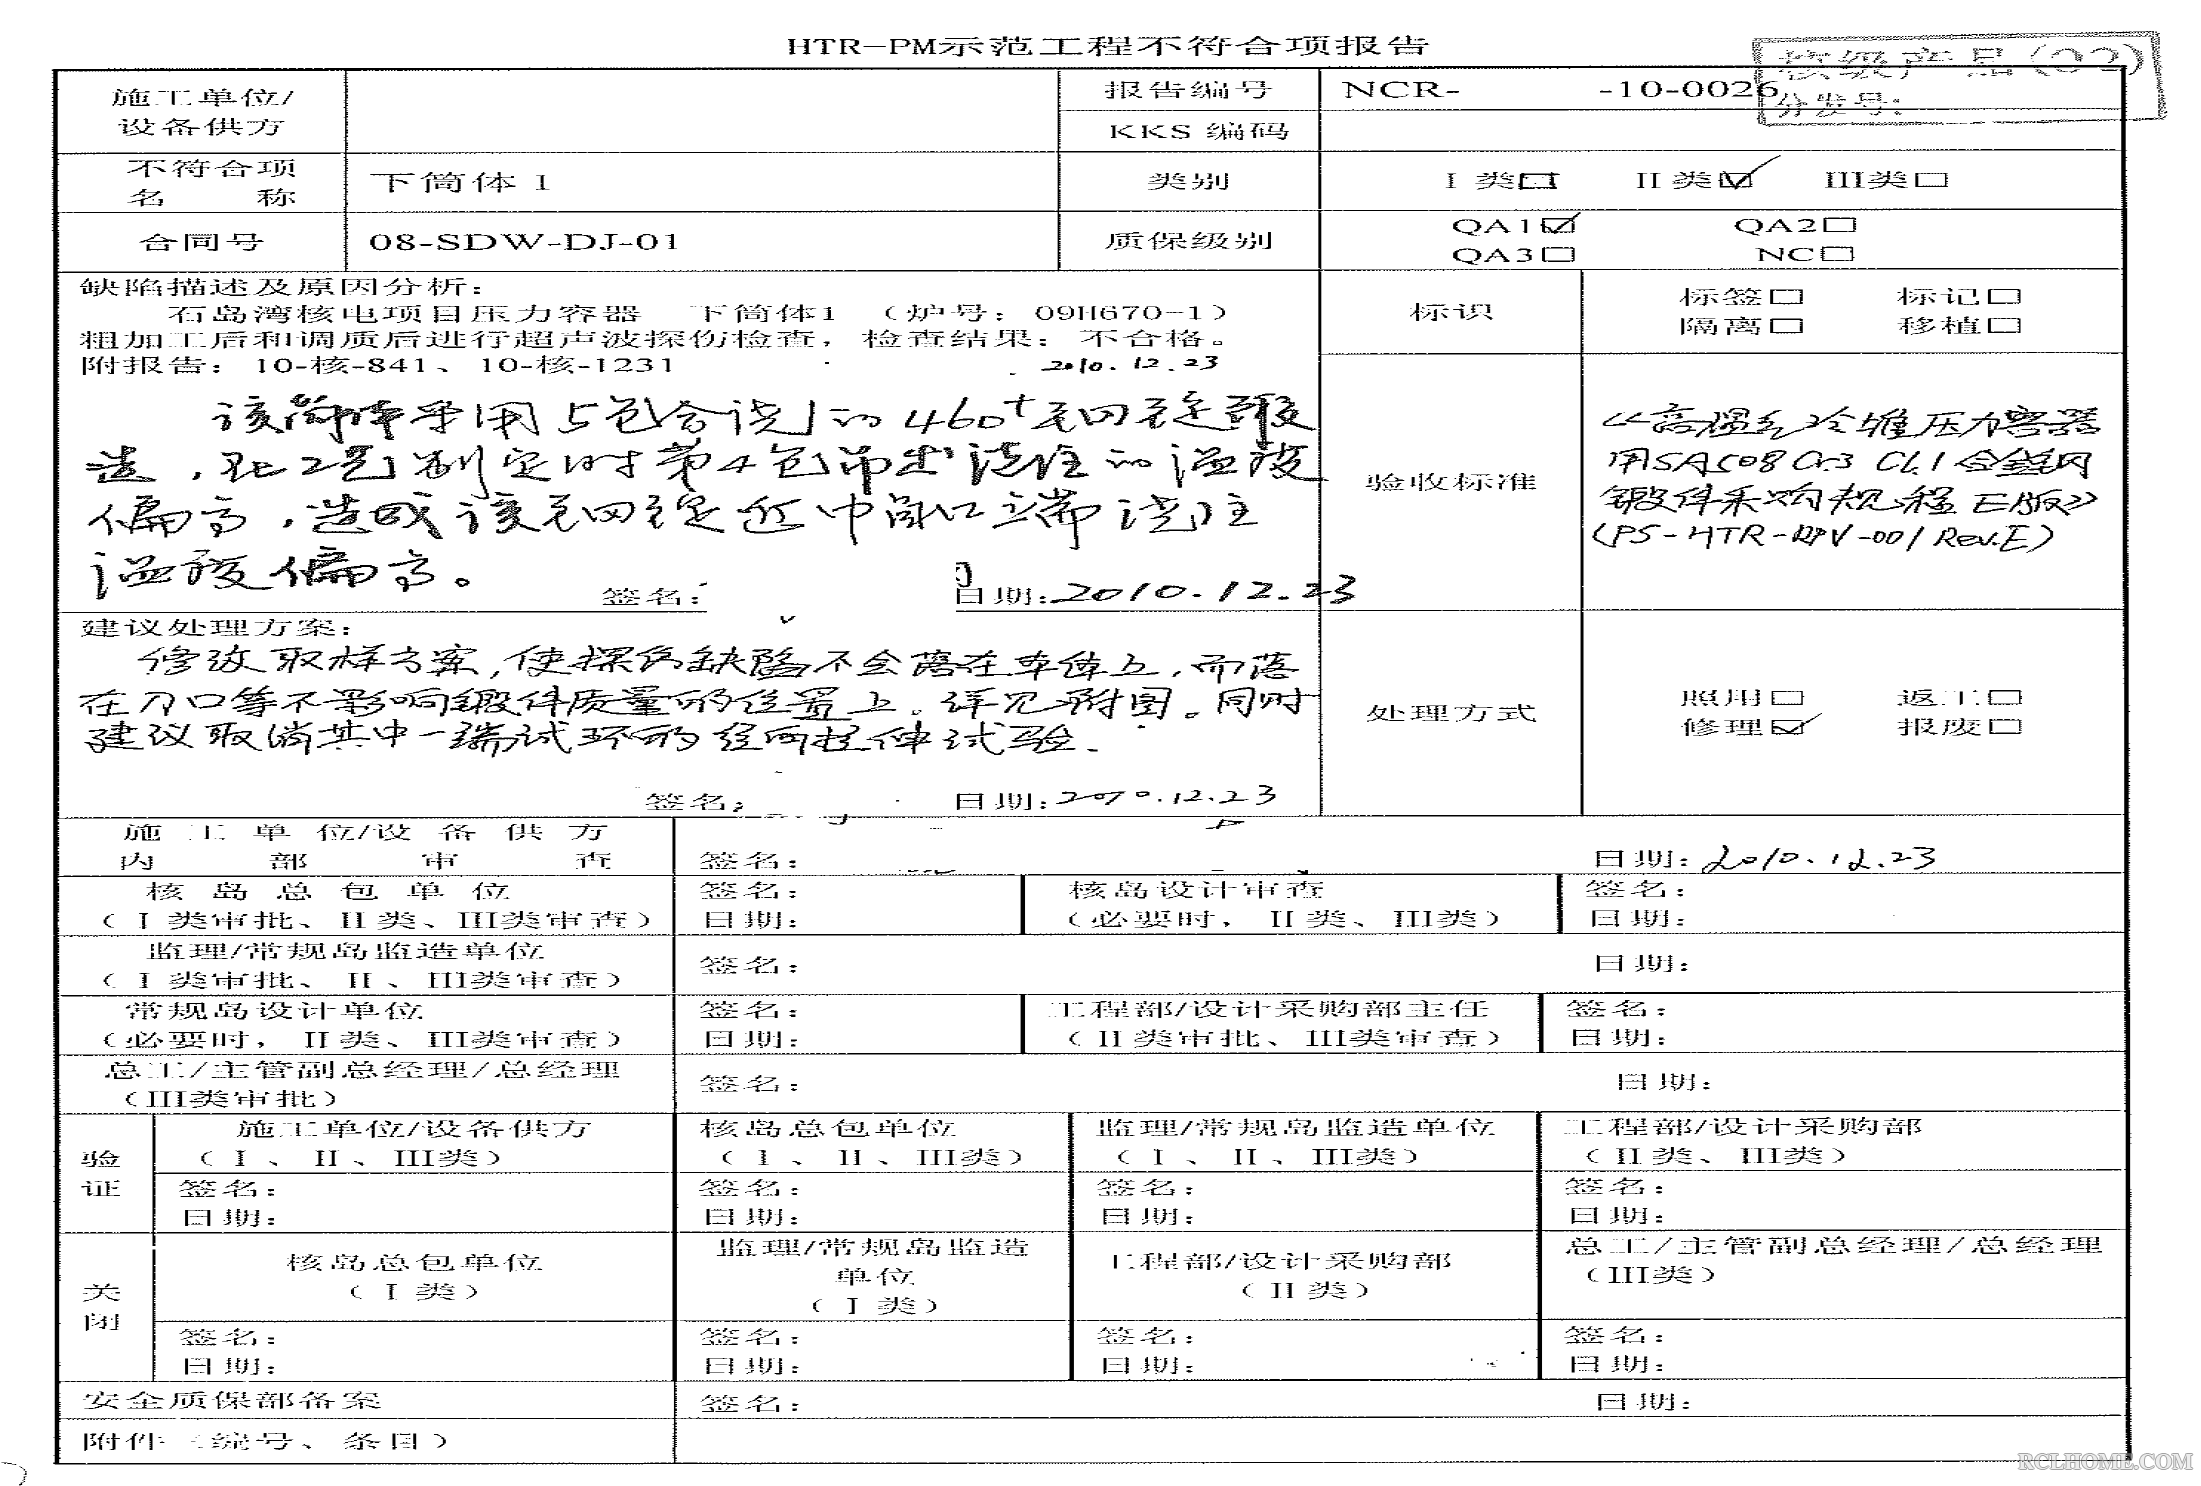 HTR-PM示范工程不符合项报告
核级产品(02)
分发号:
施工单位/
设备供方
报告编号 NCR- -10-0026
KKS 编码
不符合项
名 称
下筒体 1
类别
I 类□ II 类☑ III类□
合同号
08-SDW-DJ-01
质保级别
QA1☑ QA2□
QA3□ NC□
缺陷描述及原因分析:
石岛湾核电项目压力容器 下筒体1 (炉号: 09H670-1)
粗加工后和调质后进行超声波探伤检查, 检查结果: 不合格。
附报告: 10-核-841、10-核-1231 2010.12.23
该筒体采用5包合浇的460t
造,
制定时第4包
浇注的温度
偏高,造成该
端浇注
温度偏高。
签名: 日期:2010.12.23
标识
标签□ 标记□
隔离□ 移植□
验收标准
《高温气冷堆压力容器
用SA508 Gr3 Cl.1合金钢
锻件采购规程E版》
(PS-HTR-RPV-001 Rev.E)
建议处理方案:
修改取样方案,使探伤缺陷不会落在本体上,而落
在刀口等不影响锻件质量的位置上。详见附图。同时
建议取消其中一端试环的径向拉伸试验.
签名: 日期:2010.12.23
处理方式
照用□ 返工□
修理☑ 报废□
施工单位/设备供方
内部审查
签名: 日期: 2010.12.23
核岛总包单位
(I 类审批、II 类、III类审查)
签名:
日期:
核岛设计审查
(必要时, II 类、III类)
签名:
日期:
监理/常规岛监造单位
(I 类审批、II 、III类审查)
签名: 日期:
常规岛设计单位
(必要时, II 类、III类审查)
签名:
日期:
工程部/设计采购部主任
(II 类审批、III类审查)
签名:
日期:
总工/主管副总经理/总经理
(III类审批)
签名: 日期:
验
证
施工单位/设备供方
(I 、II 、III类)
核岛总包单位
(I 、II 、III类)
监理/常规岛监造单位
(I 、II 、III类)
工程部/设计采购部
(II 类、III类)
签名:
日期:
签名:
日期:
签名:
日期:
签名:
日期:
关
闭
核岛总包单位
(I 类)
监理/常规岛监造
单位
(I 类)
工程部/设计采购部
(II 类)
总工/主管副总经理/总经理
(III类)
签名:
日期:
签名:
日期:
签名:
日期:
签名:
日期:
安全质保部备案
签名: 日期:
附件(编号、条目)
RCLHOME.COM